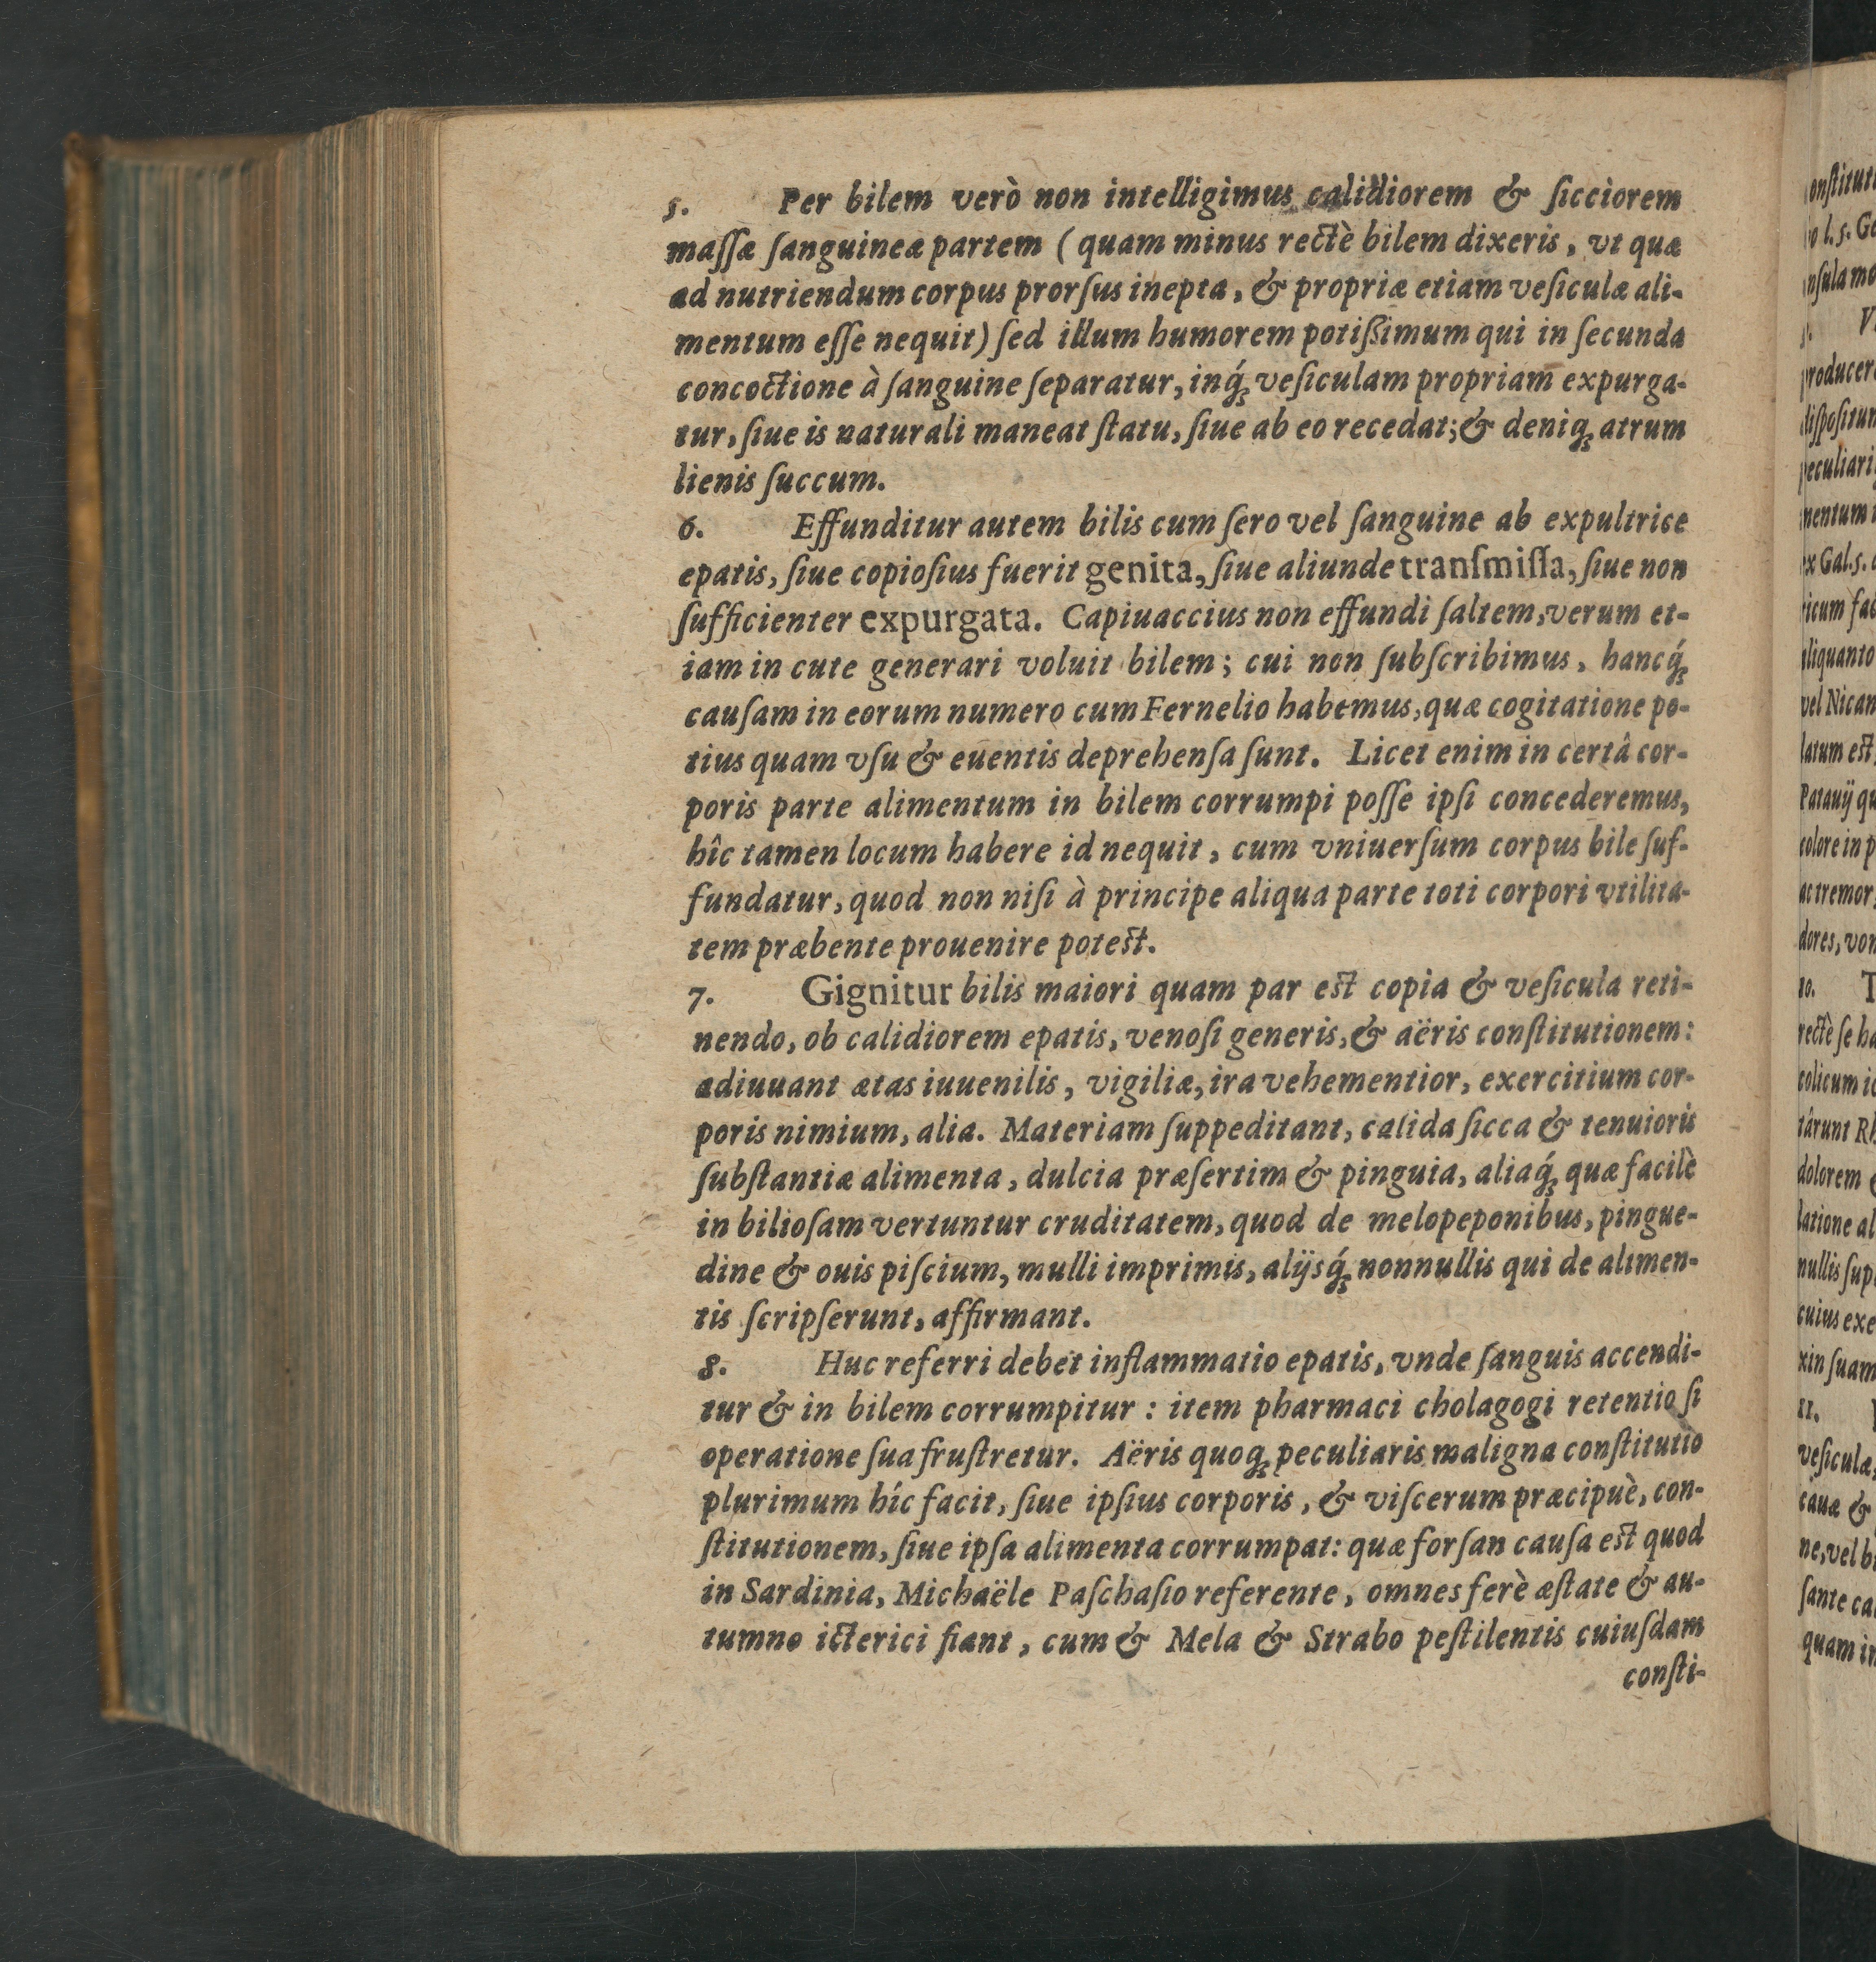 5. Per bilem verò non intelligimus calidiorem & ſicciorem
maſſæ ſanguineæ partem ( quam minus rectè bilem dixeris, vt quæ
ad nutriendum corpus prorſus inepta, & propriæ etiam veſiculæ ali-
mentum eſſe nequit) ſed illum humorem potißimum qui in ſecunda
concoctione à ſanguine ſeparatur, inq́ꝫ veſiculam propriam expurga-
tur, ſiue is naturali maneat ſtatu, ſiue ab eo recedat; & deniqꝫ atrum
lienis ſuccum.
6. Effunditur autem bilis cum ſero vel ſanguine ab expultrice
epatis, ſiue copioſius fuerit genita, ſiue aliunde tranſmiſſa, ſiue non
ſufficienter expurgata. Capiuaccius non effundi ſaltem, verum et-
iam in cute generari voluit bilem; cui non ſubſcribimus, hancq́ꝫ
cauſam in eorum numero cum Fernelio habemus, quæ cogitatione po-
tius quam vſu & euentis deprehenſa ſunt. Licet enim in certâ cor-
poris parte alimentum in bilem corrumpi poſſe ipſi concederemus,
hîc tamen locum habere id nequit, cum vniuerſum corpus bile ſuf-
fundatur, quod non niſi à principe aliqua parte toti corpori vtilita-
tem præbente prouenire poteſt.
7. Gignitur bilis maiori quam par eſt copia & veſicula reti-
nendo, ob calidiorem epatis, venoſi generis, & aëris conſtitutionem:
adiuuant ætas iuuenilis, vigiliæ, ira vehementior, exercitium cor-
poris nimium, alia. Materiam ſuppeditant, calida ſicca & tenuioris
ſubſtantiæ alimenta, dulcia præſertim & pinguia, aliaq́ꝫ quæ facilè
in bilioſam vertuntur cruditatem, quod de melopeponibus, pingue-
dine & ouis piſcium, mulli imprimis, alijsq́ꝫ nonnullis qui de alimen-
tis ſcripſerunt, affirmant.
8. Huc referri debet inflammatio epatis, vnde ſanguis accendi-
tur & in bilem corrumpitur : item pharmaci cholagogi retentio ſi
operatione ſua fruſtretur. Aëris quoqꝫ peculiaris maligna conſtitutio
plurimum hîc facit, ſiue ipſius corporis, & viſcerum præcipuè, con-
ſtitutionem, ſiue ipſa alimenta corrumpat: quæ forſan cauſa eſt quod
in Sardinia, Michaële Paſchaſio referente, omnes ferè æſtate & au-
tumno icterici fiant, cum & Mela & Strabo peſtilentis cuiuſdam
conſti-